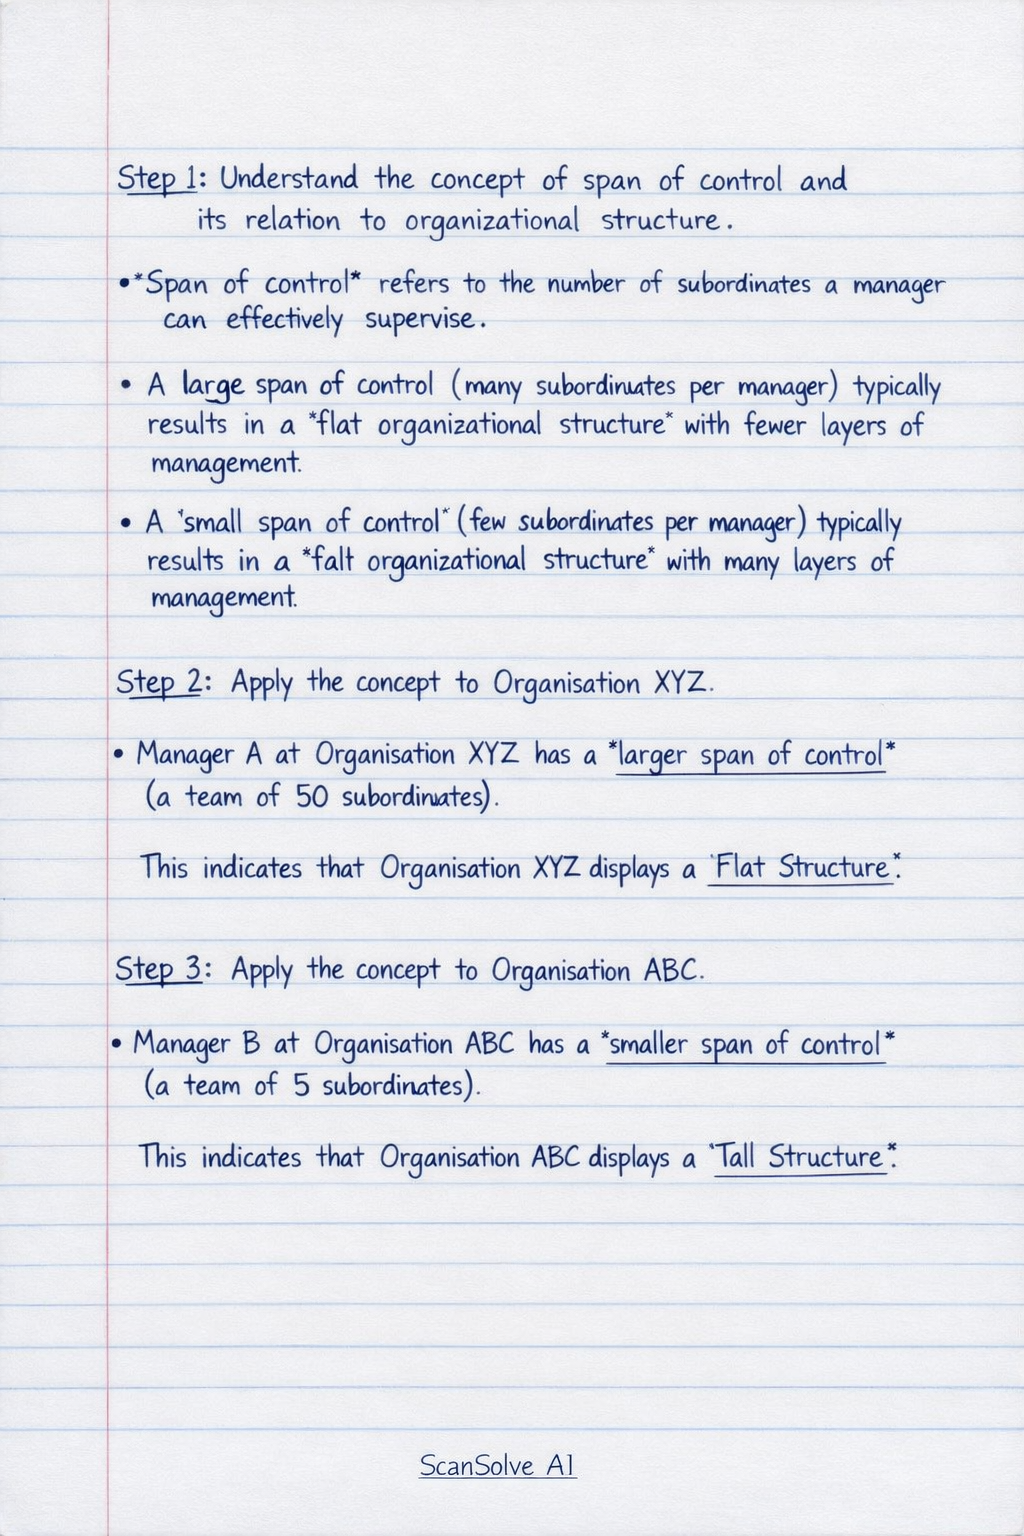 Step 1: Understand the concept of span of control and
its relation to organizational structure.
•*Span of control* refers to the number of subordinates a manager
can effectively supervise.
• A large span of control (many subordinates per manager) typically
results in a *flat organizational structure* with fewer layers of
management.
• A 'small span of control* (few subordinates per manager) typically
results in a *falt organizational structure* with many layers of
management.
Step 2: Apply the concept to Organisation XYZ.
• Manager A at Organisation XYZ has a *larger span of control*
(a team of 50 subordinates).
This indicates that Organisation XYZ displays a 'Flat Structure*.
Step 3: Apply the concept to Organisation ABC.
• Manager B at Organisation ABC has a *smaller span of control*
(a team of 5 subordinates).
This indicates that Organisation ABC displays a 'Tall Structure*.
ScanSolve AI